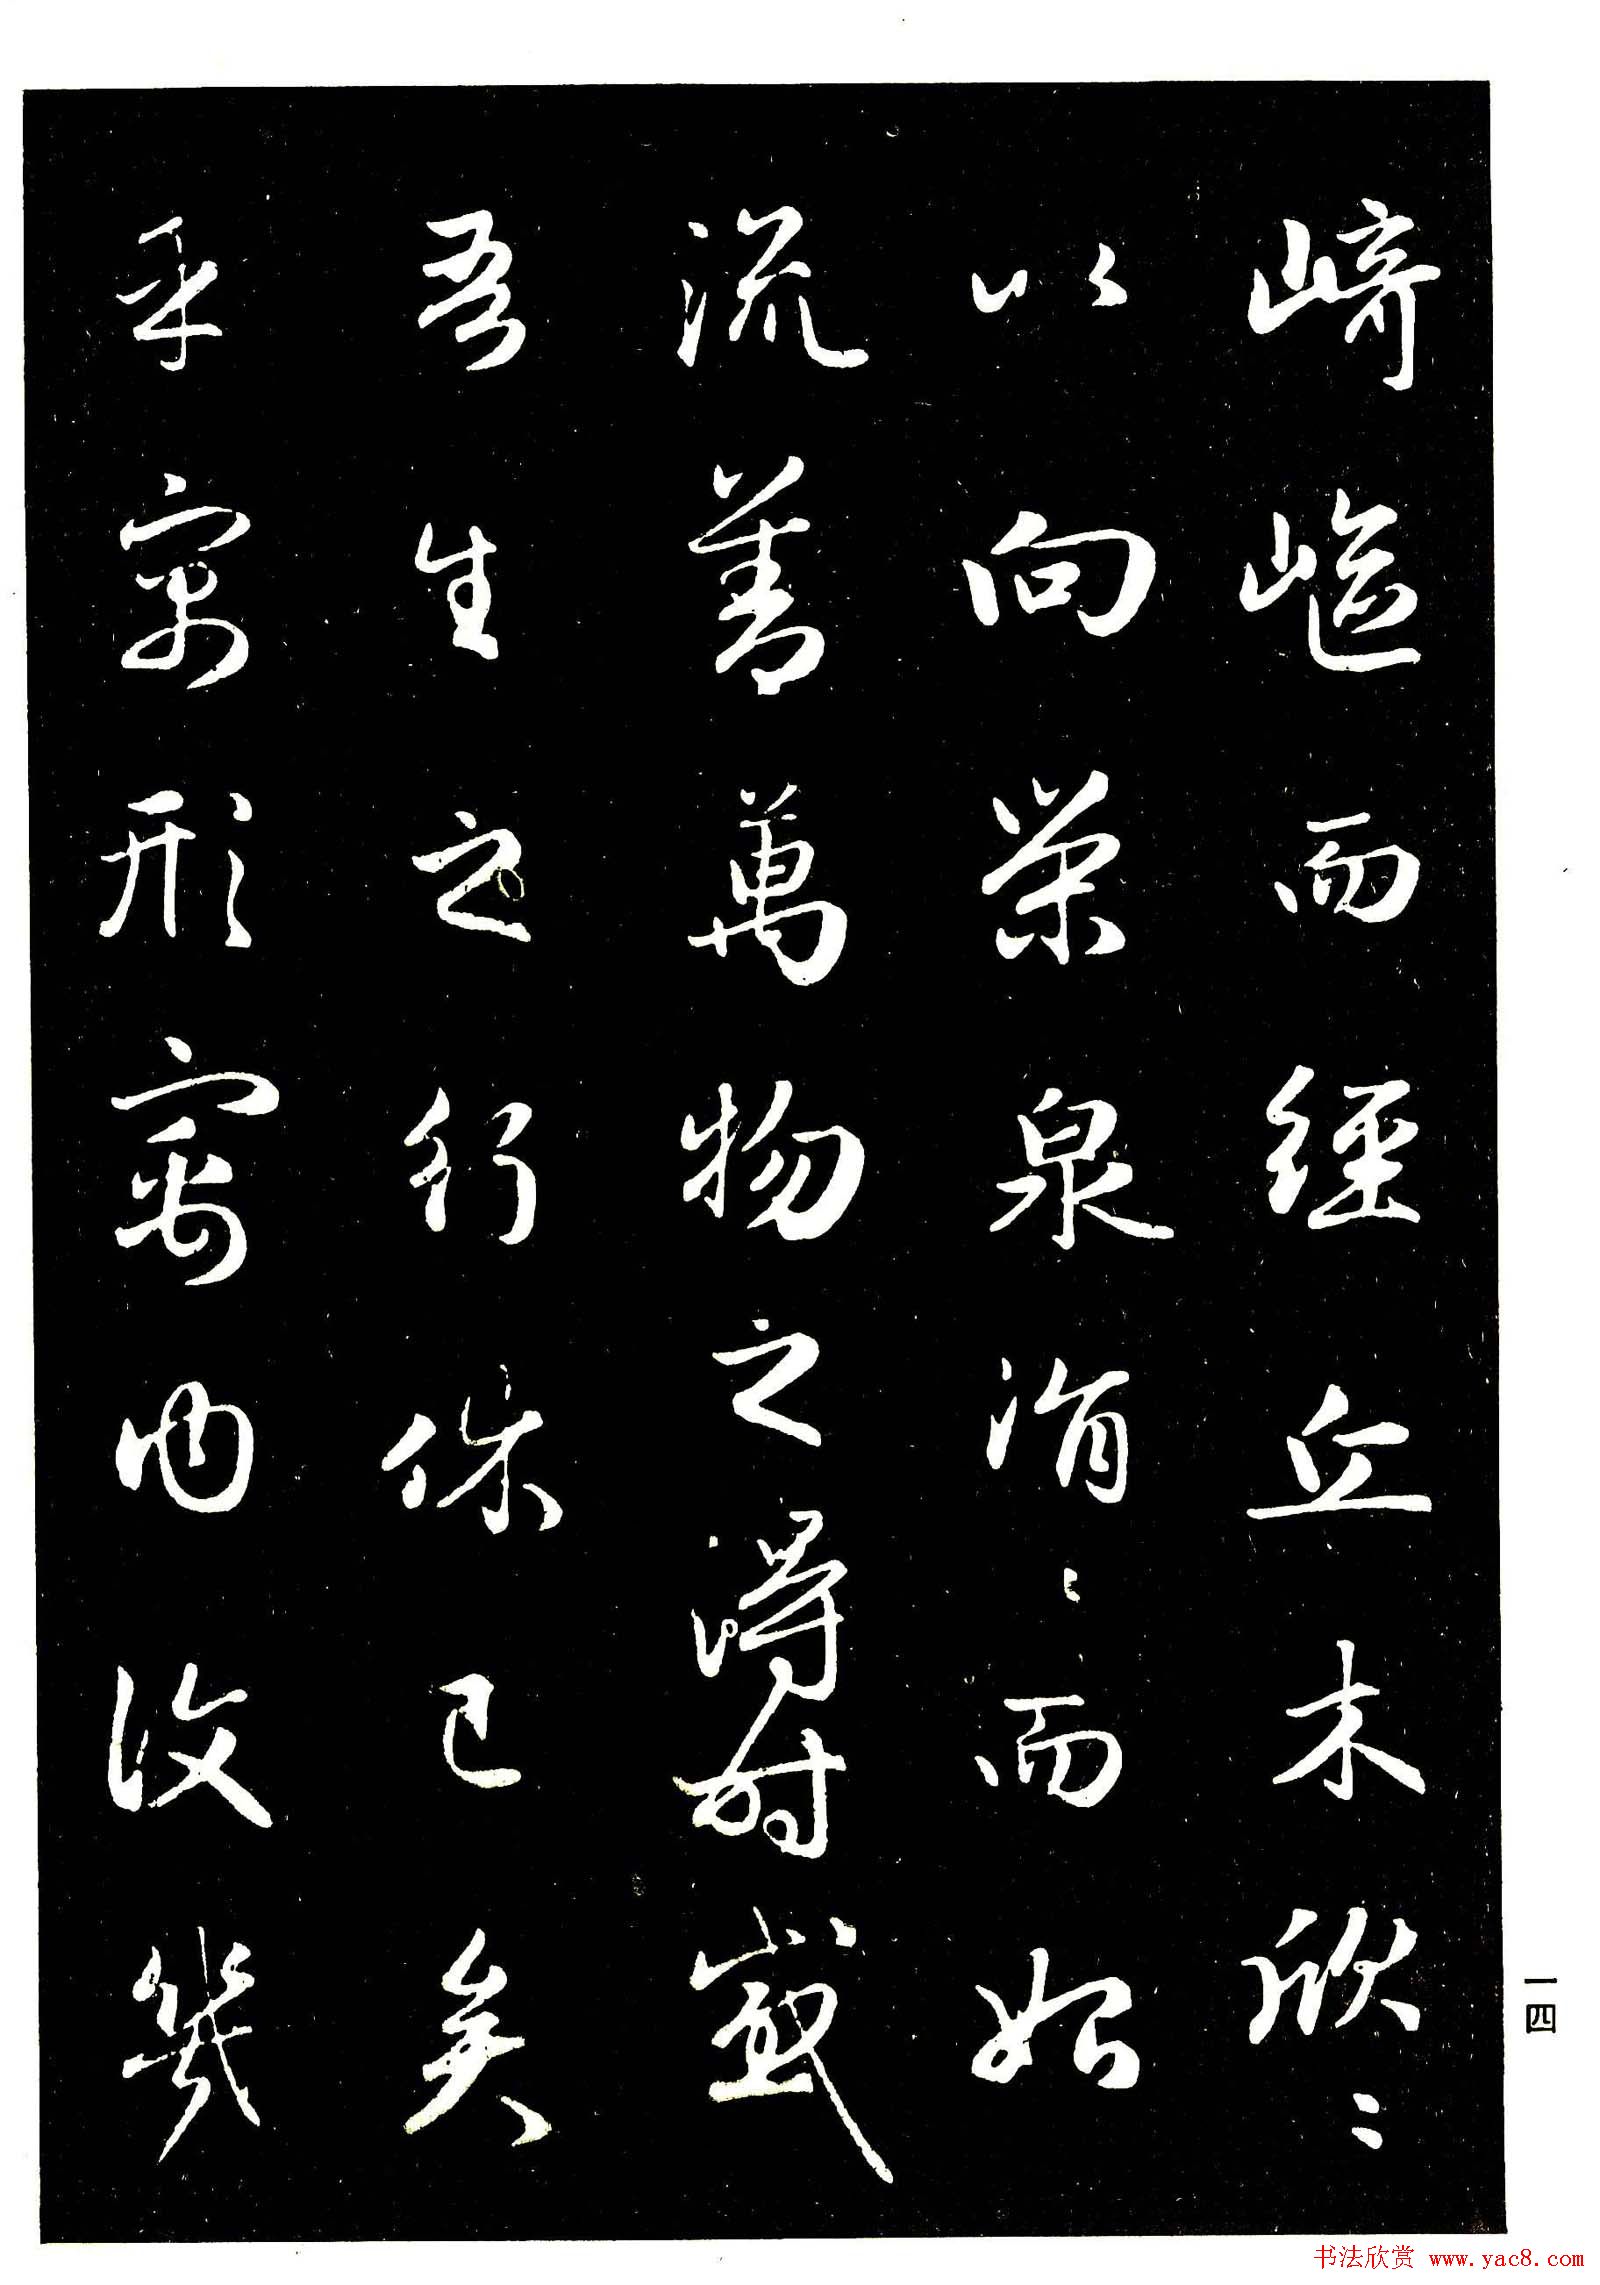 崎嶇而經丘木欣〻
以向榮泉涓〻而始
流善萬物之得時感
吾生之行休已矣
乎寓形㝢内復幾
一四
书法欣赏 www.yac8.com